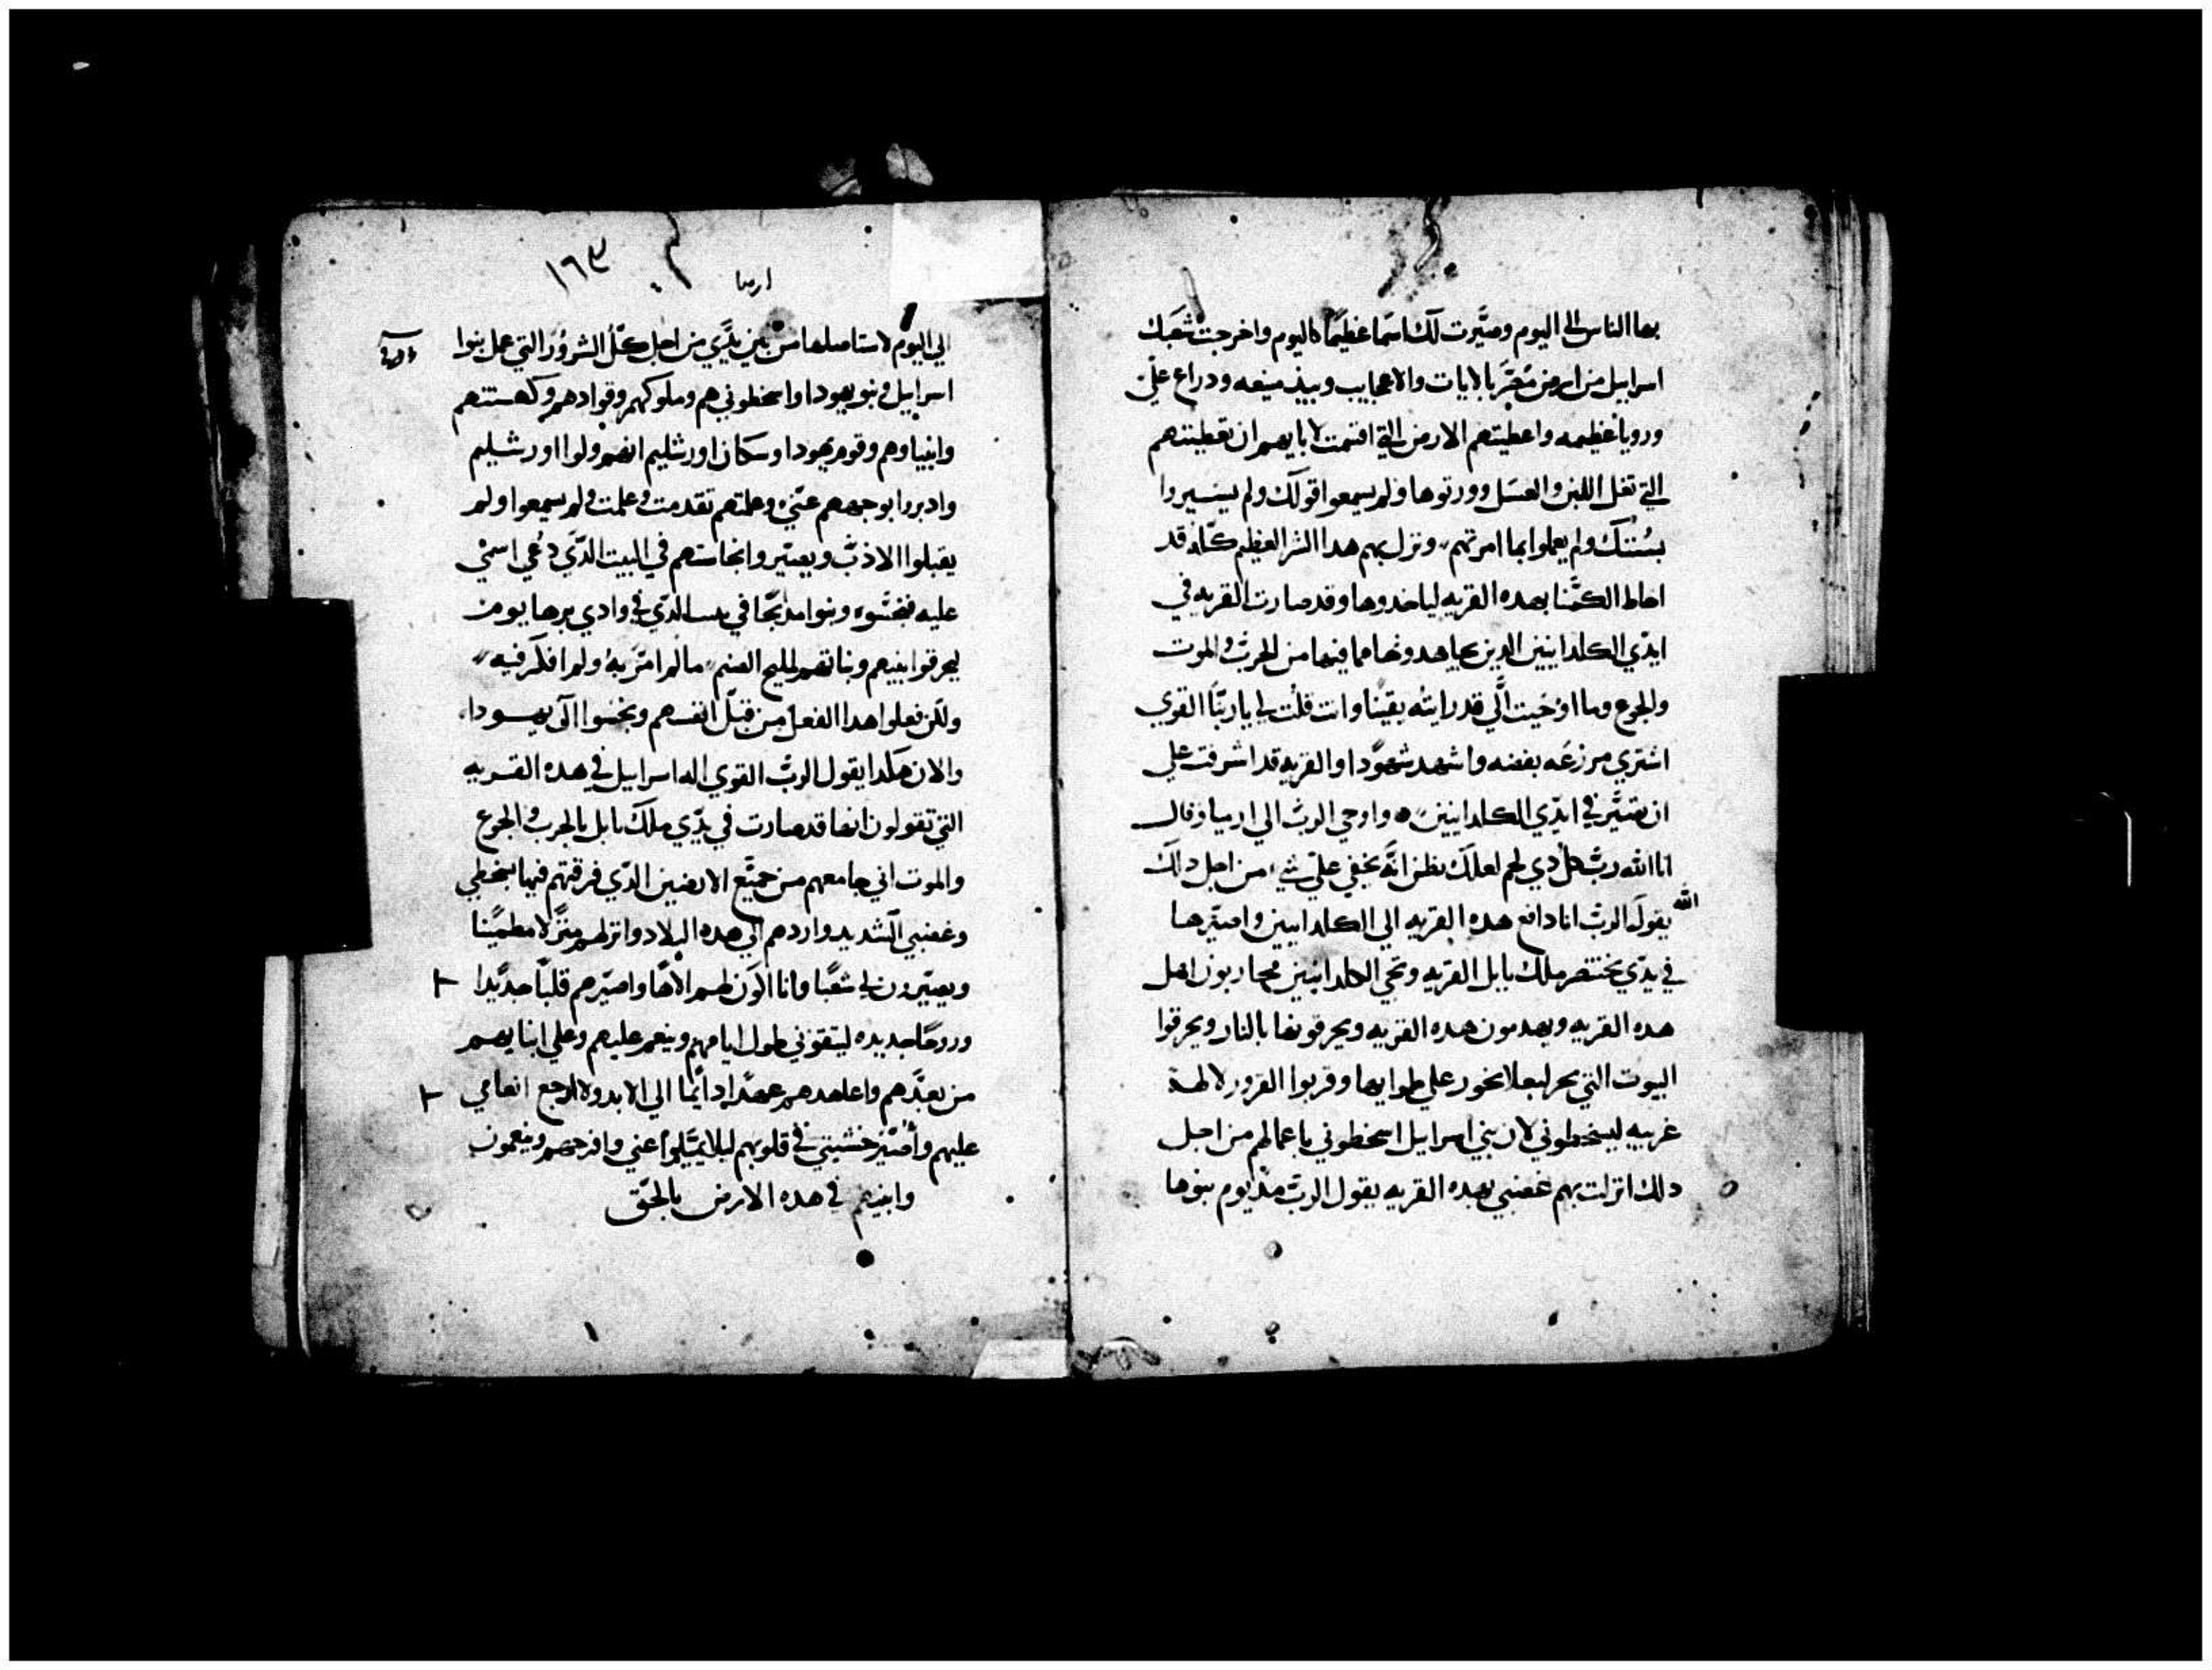 بها الناس الى اليوم وصيَّرت لك اسمًا عظيمًا كاليوم واخرجت شعبك
اسراييل من ارض مصر بالايات والاعجايب وبيد منيعه ودراع عليّ
ورويا عظيمه واعطيتهم الارض التي اقتمت لابايهم ان تعطيتهم
التي تغل اللبن والعسل وورتوها ولم يسمعوا قولك ولم يسيروا
بسُنتك ولم يعملوا بما امرتهم ونزل بهم هدا الشر العظيم كلّه قد
احاط الكمنا بهده القريه لياخدوها وقد صارت القريه في
ايدّي الكلدانيين الدين يجاهدونها مما فيها من الحرب والموت
والجوع وما اوحيت الَّي قد رايته يقينًا وانت قلت لي يا ربّنا القوي
اشتري مزرعه بفضه واشهد شهودًا والقريه قد اشرفت علي
ان تصيَّر في ايدّي الكلدانيين ه واوحي الربّ الي ارميا وقال
انا الله ربّ كل دي لحم لعلك تظن انَّه يخفي عليّ شي من اجل دلك
الله
يقول الربّ انا دافع هده القريه الي الكلدانيين واصيّرها
في يدّي بختنصر ملك بابل القريه ونجي الكلدانيين محاربون اهل
هده القريه ويهدمون هده القريه ويحرقونها بالنار ويحرقوا
البيوت التي بخر لبعلا بخور علي طوابها وقربوا القرور لالهة
غريبه ليسخطوني لان بني اسراييل اسخطوني باعمالهم من اجل
دلك انزلت بهم غضبي بهده القريه يقول الربّ مند يوم بنوها
١٦٩
ارميا
الي اليوم لاستاصلها من بين يدّي من اجل كلّ الشرور التي عمل بنوا
اسراييل وبنو يهودا واسخطوني هم وملوكهم وقوادهم وكهنتهم
وانبياوهم وقوم يهودا وسكان اورشليم انهم ولوا اورشليم
وادبروا بوجههم عنّي وعلمتهم تقدمت وعلمت ولم يسمعوا ولم
يقبلوا الادبّ ويصيّروا نجاستهم في البيت الدّي دُعي اسمي
عليه فنجّسوه وبنوا مدبحًا في الدّي في وادي برها يوم
ليحرقوا بنيهم وبناتهم لمليح الصنم ما لم امر به ولم افكر فيه
ولكن فعلوا هدا الفعل من قبل انفسهم ونجسوا ال يهودا
والان هكدا يقول الربّ القوي اله اسراييل في هده القريه
التي تقولون انها قد صارت في يدّي ملك بابل بالحرب والجوع
والموت اني جامعهم من جميع الارضين الدّي فرقتهم فيها بسخطي
وغضبي الشديد واردهم الي هده البلاد وانزلهم منزلًا مطمينًا
ويصيّرون لي شعبًا وانا اكون لهم الاهًا واصيّرهم قلبًا جديدًا
وروحًا جديده ليتقوني طول ايامهم وينعم عليهم وعلي ابنايهم
من بعدهم واعاهدهم عهدًا دايمًا الي الابد ولا ارجع انعامي
عليهم واصيّر خشيتي في قلوبهم ليلا يميلوا عني وافرحهم وينعمون
وابنيهم في هده الارض بالحق